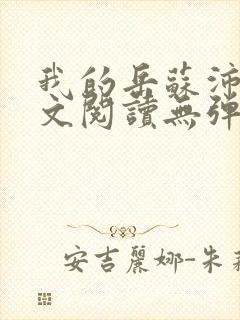 我的岳蘇沛
文閱讀無彈
安吉麗娜-朱莉